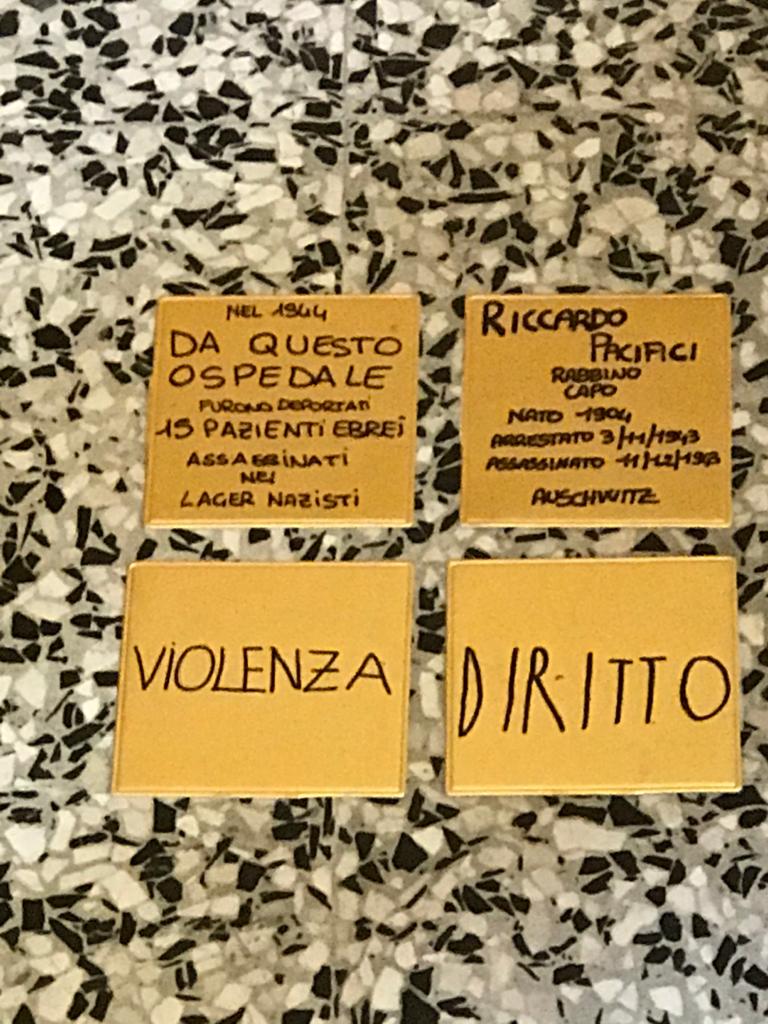 NEL 1944
DA QUESTO
OSPEDALE
FURONO DEPORTATI
15 PAZIENTI EBREI
ASSASSINATI
NEI
LAGER NAZISTI
RICCARDO
PACIFICI
RABBINO
CAPO
NATO 1904
ARRESTATO 3/11/1943
ASSASSINATO 11/12/1943
AUSCHWITZ
VIOLENZA
DIRITTO